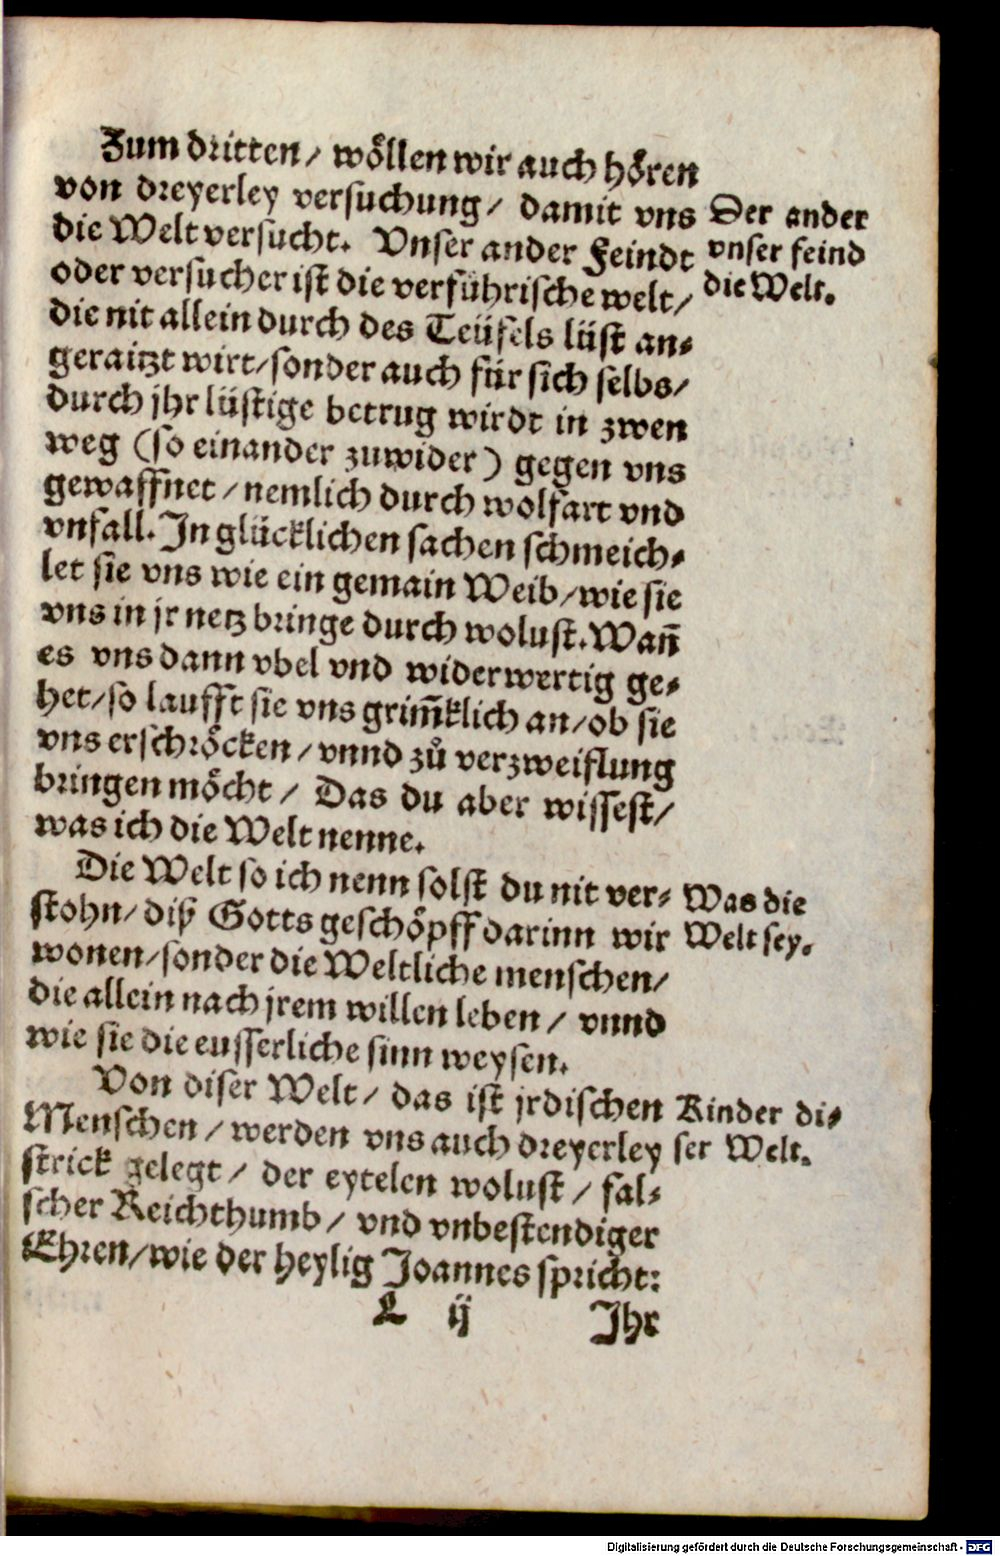 Zum dritten / wöllen wir auch hören
von dreyerley versuchung / damit vns
die Welt versucht. Vnser ander Feindt
oder versucher ist die verführische welt /
die nit allein durch des Teüfels lüst an⸗
geraitzt wirt / sonder auch für sich selbs /
durch jhr lüstige betrug wirdt in zwen
weg (so einander zuwider) gegen vns
gewaffnet / nemlich durch wolfart vnd
vnfall. In glücklichen sachen schmeich⸗
let sie vns wie ein gemain Weib / wie sie
vns in jr netz bringe durch wolust. Wañ
es vns dann vbel vnd widerwertig ge⸗
het / so laufft sie vns grim̃klich an / ob sie
vns erschröcken / vnnd zů verzweiflung
bringen möcht / Das du aber wissest /
was ich die Welt nenne.
Der ander
vnser feind
die Welt.
Die Welt so ich nenn solst du nit ver⸗
stohn / diß Gotts geschöpff darinn wir
wonen / sonder die Weltliche menschen /
die allein nach jrem willen leben / vnnd
wie sie die eusserliche sinn weysen.
Was die
Welt sey.
Von diser Welt / das ist jrdischen
Menschen / werden vns auch dreyerley
strick gelegt / der eytelen wolust / fal⸗
scher Reichthumb / vnd vnbestendiger
Ehren / wie der heylig Joannes spricht:
Kinder di⸗
ser Welt.
L ij
Ihr
Digitalisierung gefördert durch die Deutsche Forschungsgemeinschaft - DFG